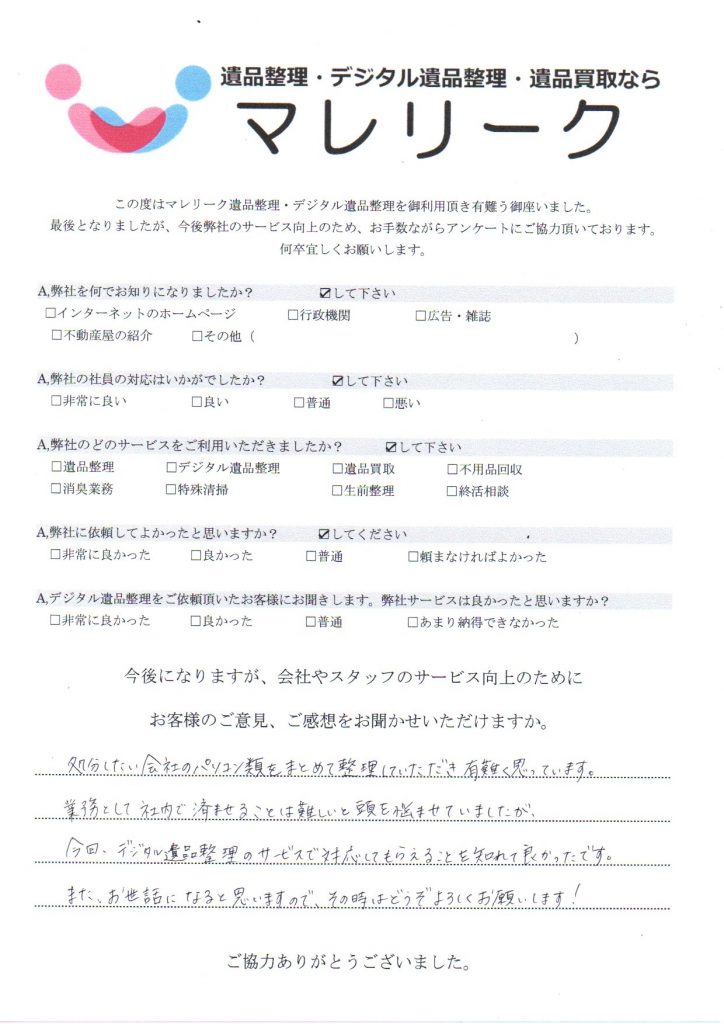 遺品整理・デジタル遺品整理・遺品買取なら
マレリーク
この度はマレリーク遺品整理・デジタル遺品整理を御利用頂き有難う御座いました。
最後となりましたが、今後弊社のサービス向上のため、お手数ながらアンケートにご協力頂いております。
何卒宜しくお願いします。
A,弊社を何でお知りになりましたか？ ☑して下さい
□インターネットのホームページ □行政機関 □広告・雑誌
□不動産屋の紹介 □その他（ ）
A,弊社の社員の対応はいかがでしたか？ ☑して下さい
□非常に良い □良い □普通 □悪い
A,弊社のどのサービスをご利用いただきましたか？ ☑して下さい
□遺品整理 □デジタル遺品整理 □遺品買取 □不用品回収
□消臭業務 □特殊清掃 □生前整理 □終活相談
A,弊社に依頼してよかったと思いますか？ ☑してください
□非常に良かった □良かった □普通 □頼まなければよかった
A,デジタル遺品整理をご依頼頂いたお客様にお聞きします。弊社サービスは良かったと思いますか？
□非常に良かった □良かった □普通 □あまり納得できなかった
今後になりますが、会社やスタッフのサービス向上のために
お客様のご意見、ご感想をお聞かせいただけますか。
処分したい会社のパソコン類をまとめて整理していただき有難く思っています。
業務として社内で済ませることは難しいと頭を悩ませていましたが、
今回、デジタル遺品整理のサービスで対応してもらえることを知れて良かったです。
また、お世話になると思いますので、その時はどうぞよろしくお願いします！
ご協力ありがとうございました。